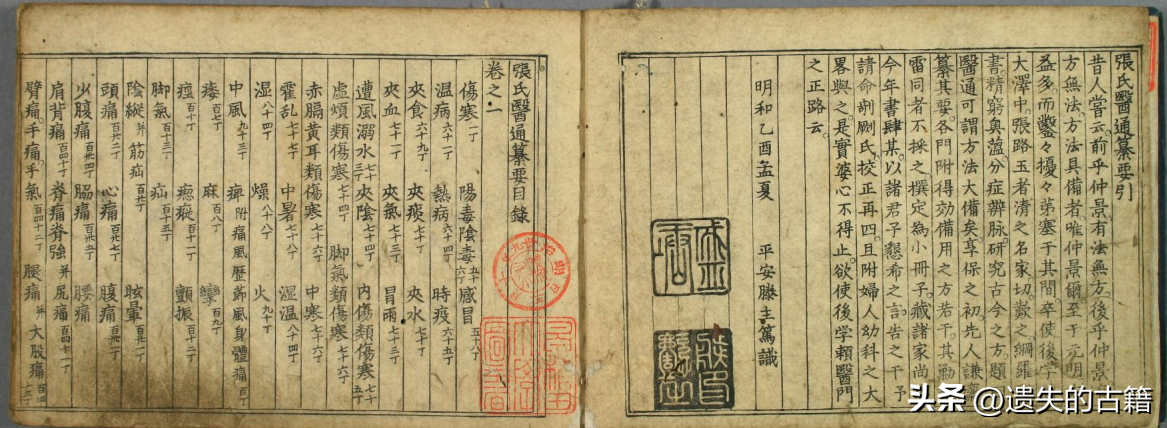 張氏醫通纂要引
昔人嘗云前乎仲景有法無方後乎仲景
方無法方法具備者唯仲景爾至于元明
益多而鑿々擾々第塞于其間卒使後學
大澤中張路玉者清之名家切歎之綱羅
書精窮奧蘊分症辨脉研究古今之方題
醫通可謂方法大備矣享保之初先人謙齋
纂其要各門附得効備用之方若干其勦
雷同者不採之撰定為小冊子藏諸家尚
今年書肆某以諸君子懇希之言告之于予
請命剞劂氏校正再四且附婦人幼科之大
畧與之是實婆心不得止欲使後学頼醫門
之正路云
明和乙酉孟夏 平安滕主篤識
張氏醫通纂要目錄
卷之一
傷寒一丁 陽毒陰毒五十六丁 感冒五十八丁
温病六十二丁 熱病六十四丁 時疫六十五丁
夾食六十九丁 夾痰七十丁
夾血七十一丁 夾氣七十三丁 冒雨七十三丁
遭風溺水七十三丁 夾陰七十四丁 内傷類傷寒七十五丁
虚煩類傷寒七十丁 脚氣類傷寒七十六丁
赤膈黄耳類傷寒七十六丁 中寒七十六丁
霍乱七十七丁 中暑七十八丁 湿温八十四丁
湿八十四丁 燥八十八丁 火九十丁
中風九十三丁 痺附痛風歷節風身體痛百丁
痿百七丁 麻百八丁 攣百九丁
痙百十丁 瘛瘲百十一丁 顫振百十二丁
脚氣百十三丁 疝百十五丁
陰縱并筋疝百廿丁 眩暈
頭痛百廿二丁 心痛百廿七丁 腹痛
少腹痛百卅四丁 脇痛 腰痛
肩背痛百四十丁 脊痛脊強并尻痛百四十一丁
臂痛手痛手氣百四十二丁 腿痛并大股痛百四十三丁
头条 @遗失的古籍